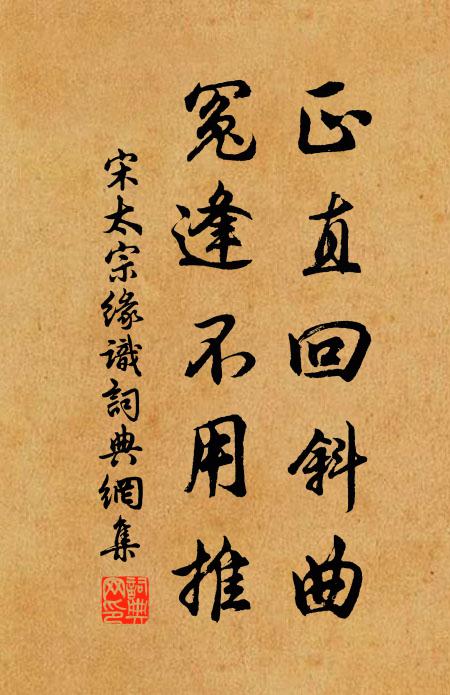 正直回斜曲
冤逢不用推
宋太宗缘識詞典網集
詞典網印